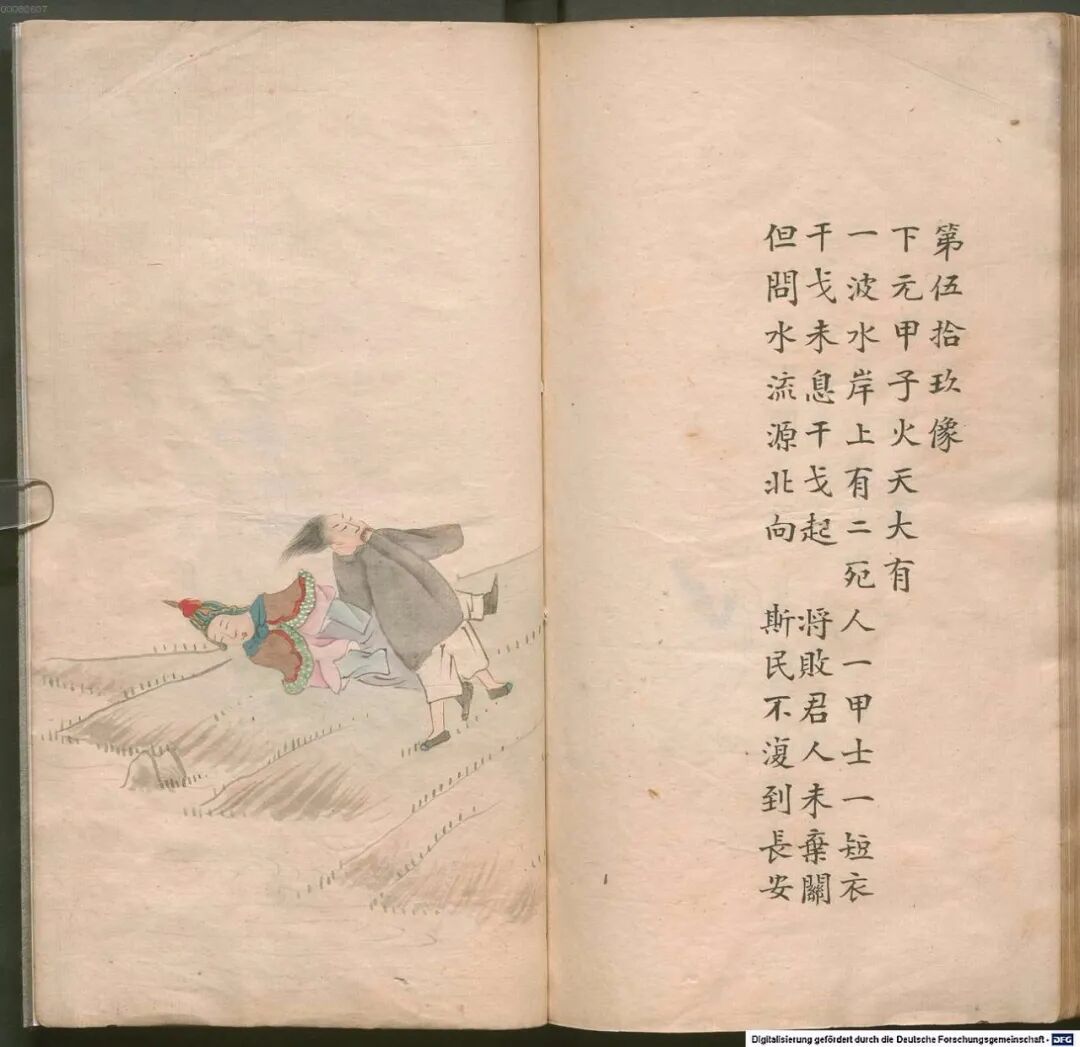 第伍拾玖像
下元甲子火天大有
一波水岸上有二死人一甲士一短衣
干戈未息干戈起 将敗君人未棄關
但問水流源北向 斯民不復到長安
00080607
Digitalisierung gefördert durch die Deutsche Forschungsgemeinschaft - DFG